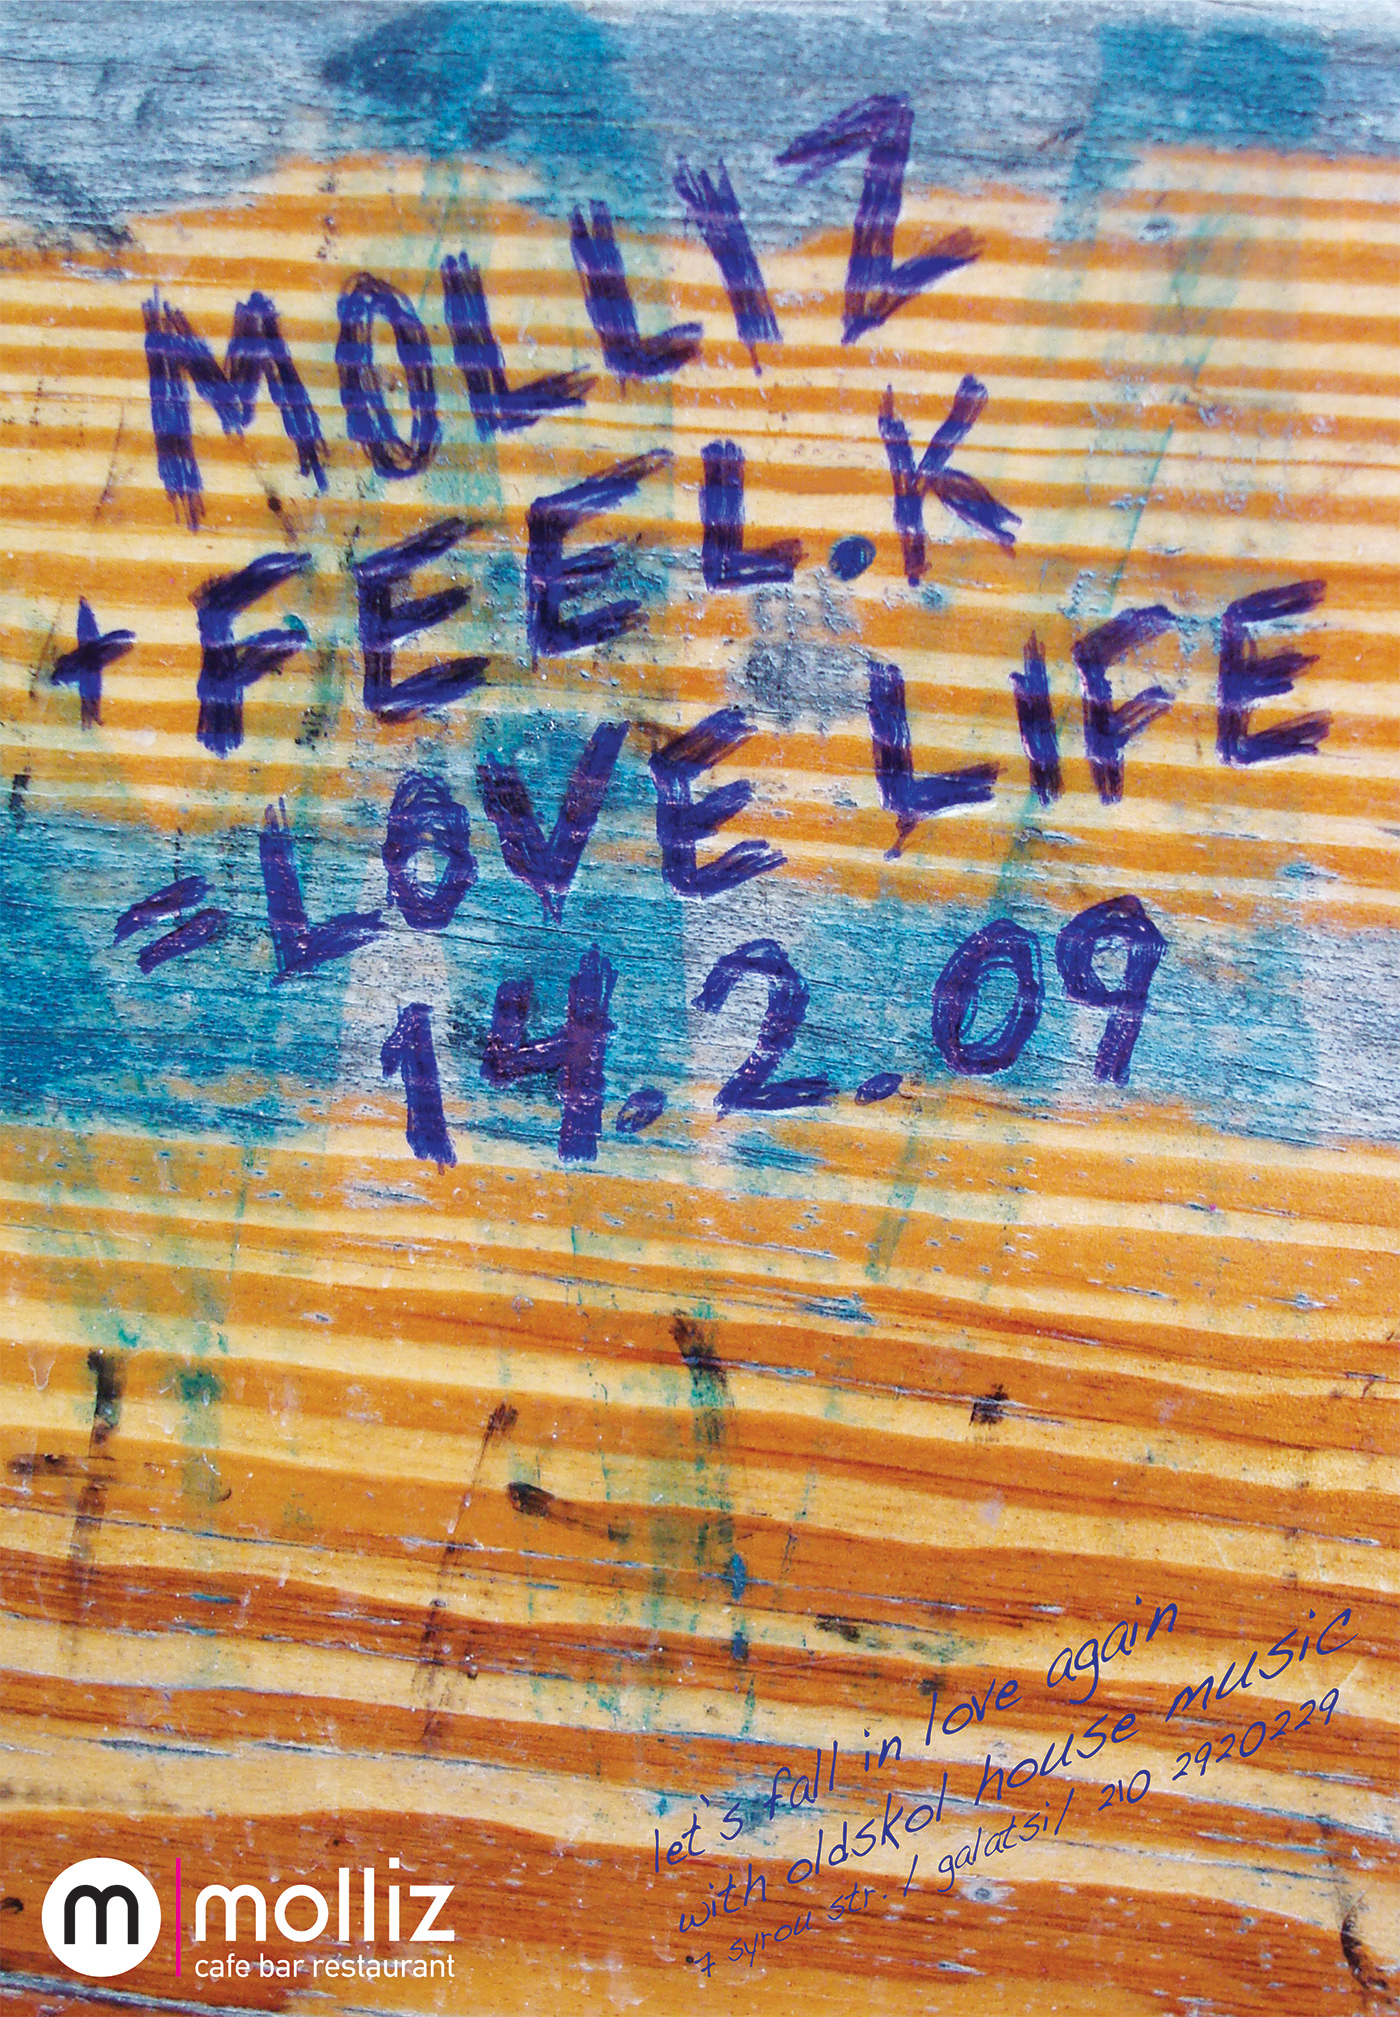 MOLLIZ
+ FEEL.K
= LOVE LIFE
14.2.09
let's fall in love again
with oldskol house music
7 syrou str. / galatsi / 210 2920229
m molliz
cafe bar restaurant